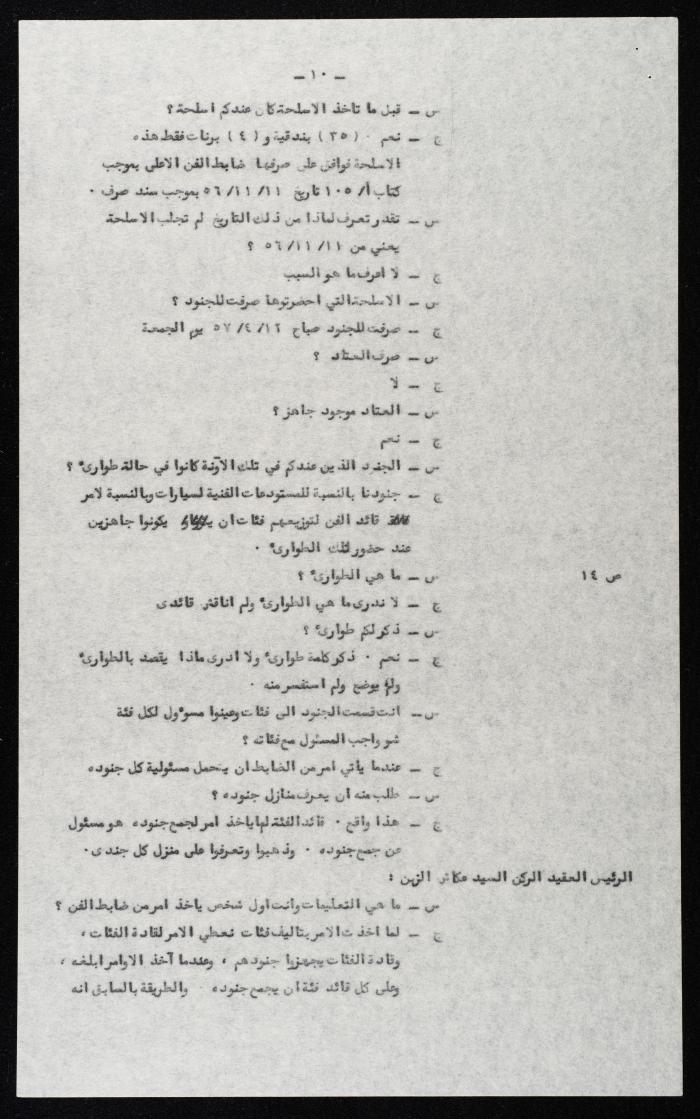 – ١٠ –
س – قبل ما تاخذ الاسلحة كان عندكم اسلحة ؟
ج – نعم . ( ٣٥ ) بندقية و ( ٤ ) برنات فقط هذه
الاسلحة فوافق على صرفها ضابط الفن الاعلى بموجب
كتاب أ/ ١٠٥ تاريخ ١١ /١١ /٥٦ بموجب سند صرف .
س – تقدر تعرف لماذا من ذلك التاريخ لم تجلب الاسلحة
يعني من ١١ /١١ /٥٦ ؟
ج – لا اعرف ما هو السبب
س – الاسلحة التي احضرتوها صرفت للجنود ؟
ج – صرفت للجنود صباح ١٢ /٤ /٥٧ يوم الجمعة
س – صرف العتاد ؟
ج – لا
س – العتاد موجود جاهز ؟
ج – نعم
س – الجنود الذين عندكم في تلك الآونة كانوا في حالة طوارئ ؟
ج – جنودنا بالنسبة للمستودعات الفنية لسيارات وبالنسبة لامر
قائد الفن لتوزيعهم فئات ان يكونوا جاهزين
عند حضور لتلك الطوارئ .
ص ١٤
س – ما هي الطوارئ ؟
ج – لا ندرى ما هي الطوارئ ولم اناقش قائدى
س – ذكر لكم طوارئ ؟
ج – نعم . ذكر كلمة طوارئ ولا ادرى ماذا يقصد بالطوارئ
ولم يوضح ولم استفسر منه .
س – انت قسمت الجنود الى فئات وعينوا مسوٌول لكل فئة
شو واجب المسئول مع فئاته ؟
ج – عندما يأتي امر من الضابط ان يتحمل مسئولية كل جنوده
س – طلب منه ان يعرف منازل جنوده ؟
ج – هذا واقع . قائد الفئة لما ياخذ امر لجمع جنوده هو مسئول
عن جمع جنوده . وذهبوا وتعرفوا على منزل كل جندى .
الرئيس العقيد الركن السيد عكاش الزبن :
س – ما هي التعليمات وانت اول شخص ياخذ امر من ضابط الفن ؟
ج – لما اخذت الامر بتاليف فئات نعطي الامر لقادة الفئات ،
وقادة الفئات يجهزوا جنودهم ، وعندما آخذ الاوامر ابلغه ،
وعلى كل قائد فئة ان يجمع جنوده والطريقة بالسابق انه